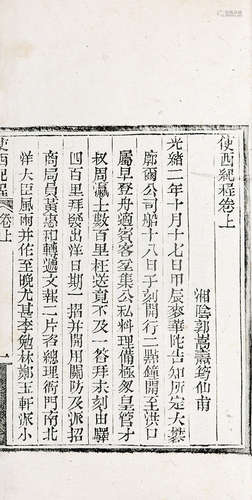 使西紀程卷上
湘陰郭嵩燾筠仙甫
光緒二年十月十七日甲辰麥華陀告知所定大
廓爾公司船十八日子刻開行二點鐘開至洪口
屬早登舟適賓客坌集公私料理備極匆皇管才
叔周瀛士數百里枉送竟不及一答拜未刻由驛
四百里拜發出洋日期一摺并開用關防及派招
商局員黃惠和轉遞文報二片咨總理衙門南北
洋大臣風雨并作至晚尤甚李勉林鄭玉軒派小
使西紀程
卷上
一